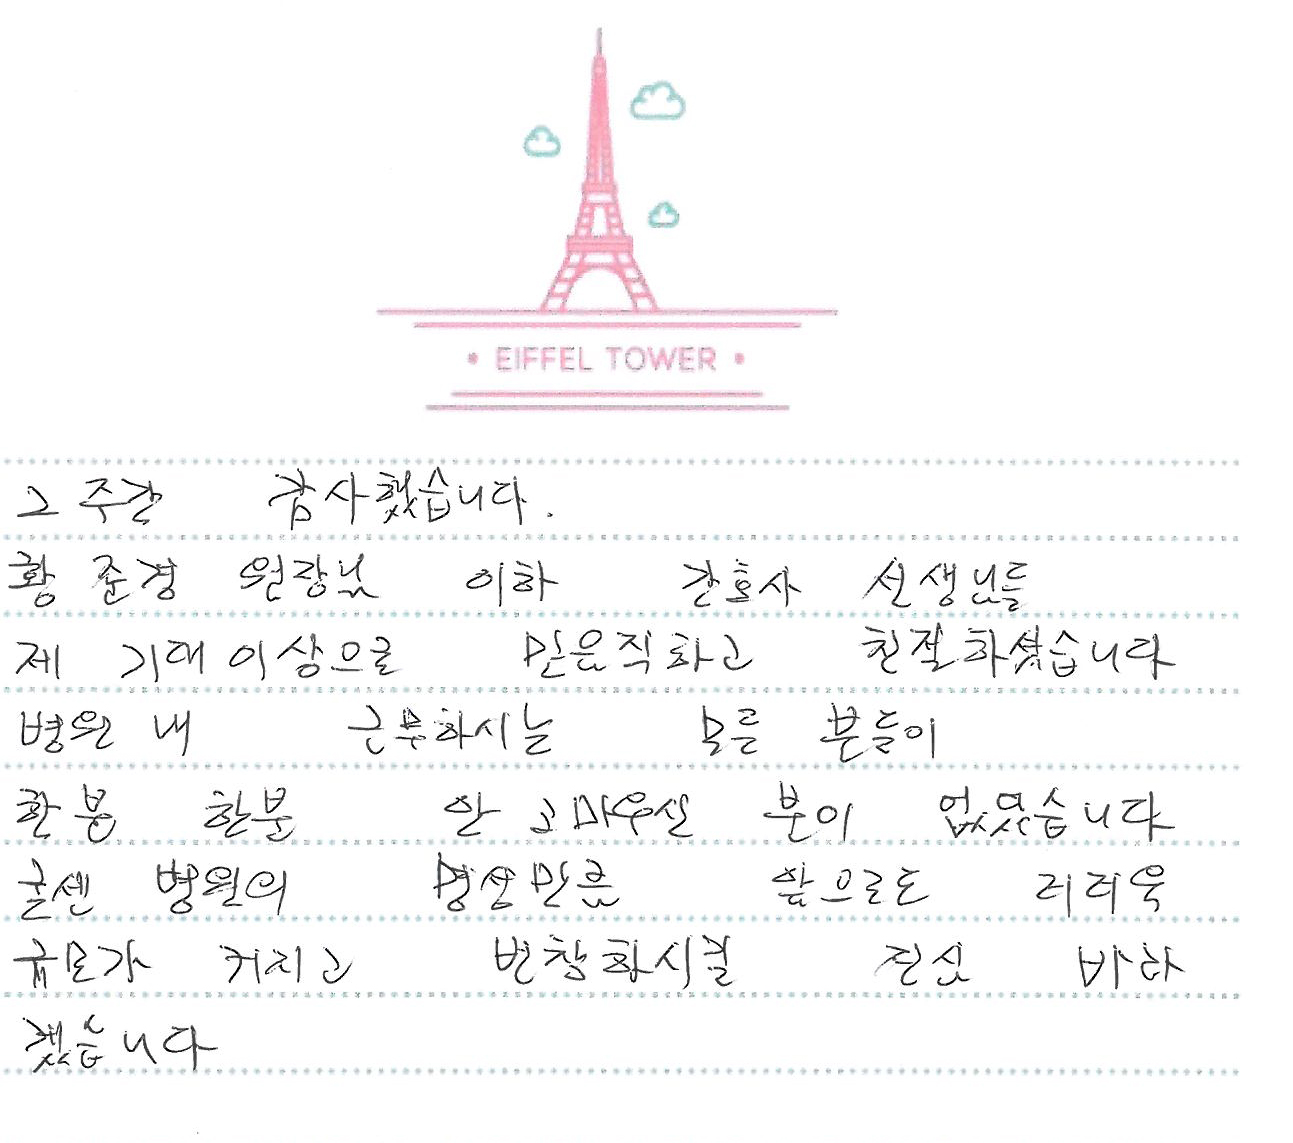 • EIFFEL TOWER •
그 주간 감사했습니다.
황 준경 원장님 이하 간호사 선생님들
제 기대 이상으로 믿음직하고 친절하셨습니다
병원 내 근무하시는 모든 분들이
한분 한분 안 고마우신 분이 없었습니다
굳센 병원의 명성만큼 앞으로도 더더욱
규모가 커지고 번창하시길 진심 바라
겠습니다